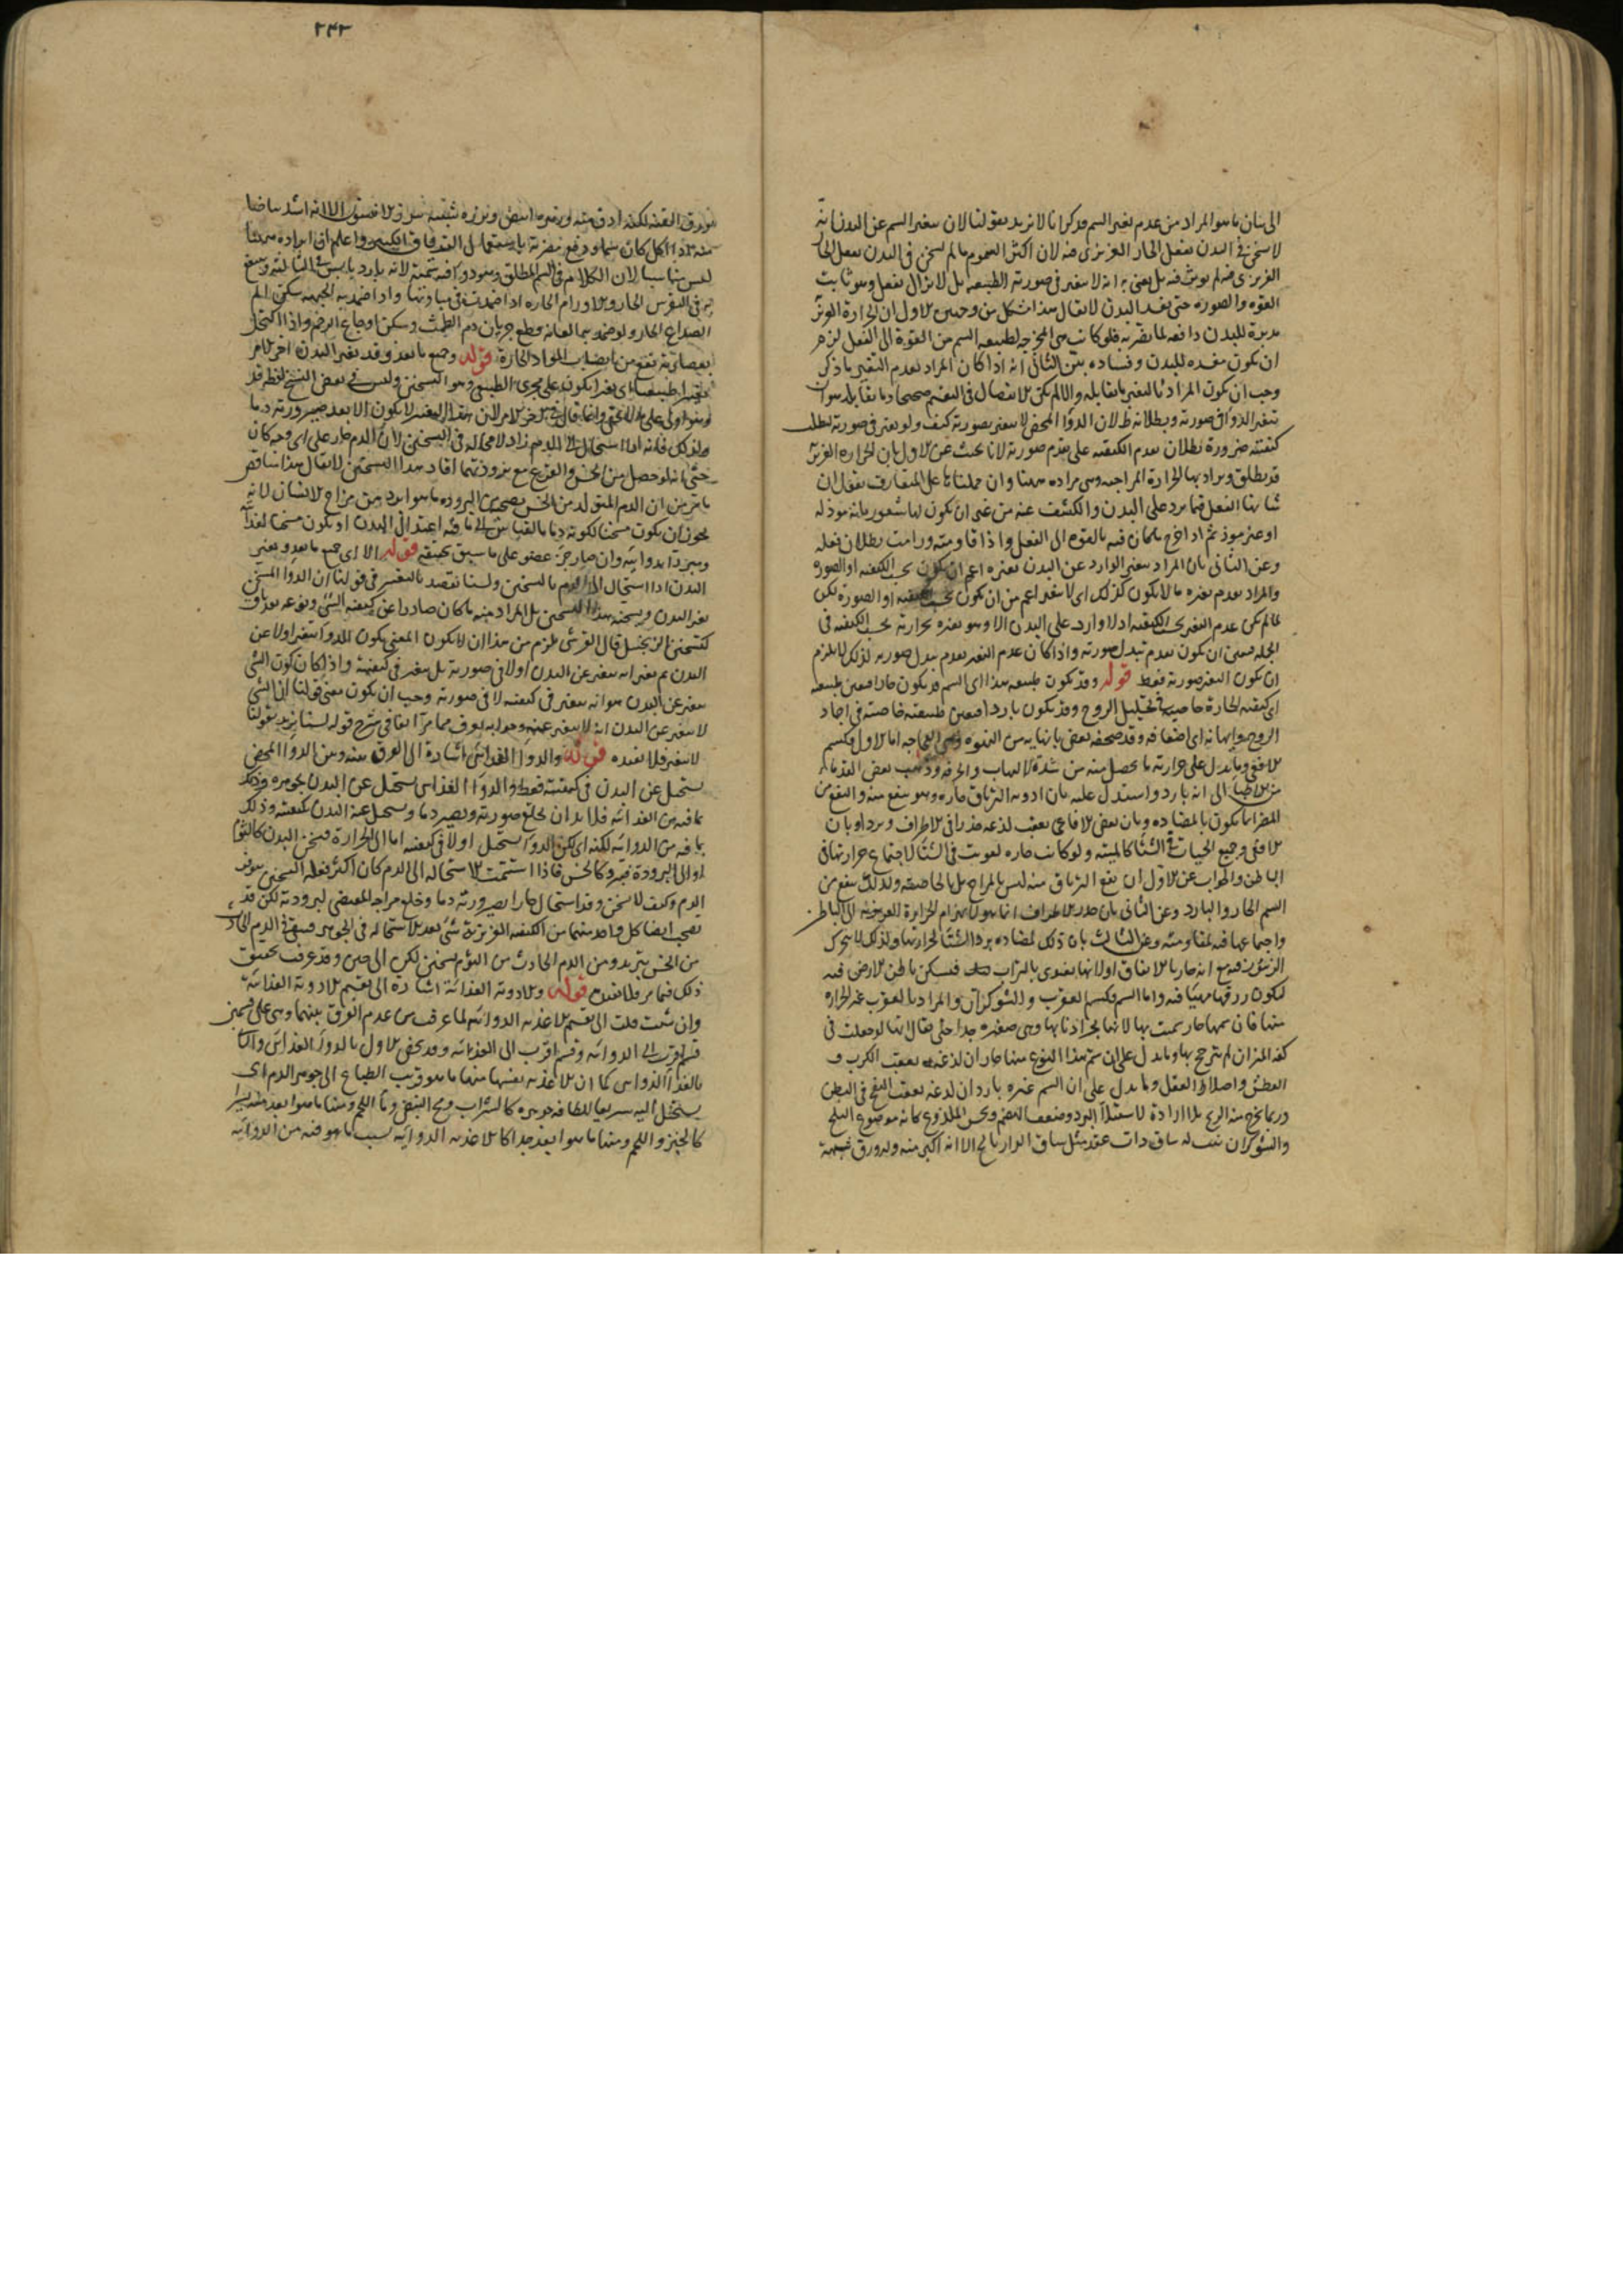 الى بيان ما هو المراد من عدم تغير السم وذكر انا لا نريد بقولنا لان سغير السم عن البدن انه
لا يسخن في البدن بفعل الحار الغريزي فيه لان اكثر السموم ما لم يسخن في البدن بفعل الحار
الغريزي فيه لم يؤثر فيه بل يعني به انه لا يتغير في صورته الطبيعية بل لا يزال يفعل وهو ثابت
القوة والصورة حتى يفسد البدن لا يقال هذا مشكل من وجهين الاول ان الحرارة الغريزية
مدبرة للبدن دافعة لما يضر به فلو كانت هي المخرجة لطبيعة السم من القوة الى الفعل لزم
ان تكون مفسدة للبدن وفساده بين الثاني انه اذا كان المراد بعدم التغير ما ذكر
وجب ان يكون المراد بالتغير ما يقابله والا لم يكن الانفصال في التقسيم صحيحا وما يقابله هو ان
يتغير الدواء في صورته وبطلانه ظ لان الدواء المحض لا يتغير بصورته كيف ولو تغير في صورته لبطلت
كيفيته ضرورة بطلان تقدم الكيفية على تقدم صورته لانا نجيب عن الاول بان الحرارة الغريزية
قد يطلق ويراد بها الحرارة المزاجية وهي مراده ههنا وان حملناها على المتعارف نقول ان
شانها الفعل فيما يرد على البدن والكشف عنه من غير ان يكون لها شعور بانه موذ له
او غير موذ ثم اذا خرج ما كان فيه بالقوة الى الفعل واذا قاومته ورامت بطلان فعله
وعن الثاني بان المراد بتغير الوارد عن البدن تغيره اعم ان يكون بحسب الكيفية او الصورة
والمراد بعدم تغيره ما لا يكون كذلك اي لا يتغير اعم من ان يكون بحسب الكيفية او الصورة لكن
لما لم يكن عدم التغير بحسب الكيفية اذ لا وارد على البدن الا وهو يغيره بحرارته بحسب الكيفية في
الجملة فتعين ان يكون بعدم تبدل صورته واذا كان عدم التغير بعدم تبدل صورته لذلك لا يلزم
ان يكون التغير صورته فقط قوله وقد يكون طبيعة هذا اي السم قد يكون حارا فيعين طبيعته
اي كيفيته الحارة خاصيته في تحليل الروح وقد يكون باردا فيعين طبيعته خاصيته في اخماد
الروح وايهانه اي اضعافه وقد صحفه بعض اما الاول فكسم
الافعى وما يدل على حرارته ما يحصل منه من شدة الالتهاب والحرقة وذهب بعض القدماء
من الاطباء الى انه بارد واستدل عليه بان ادوية الترياق حارة وهو ينفع منه والنفع من
المضر انما يكون بالمضادة وبان بعض الافاعي يعقب لذعه خدرا في الاطراف وبردا وبان
الافعى وجميع الحيات في الشتاء كالميتة ولو كانت حارة لقويت في الشتاء لاجتماع حرارتها في
الباطن والجواب عن الاول ان نفع الترياق منه ليس بالمزاج بل بالخاصية ولذلك ينفع من
السم الحار والبارد وعن الثاني بان خدر الاطراف انما هو لانهزام الحرارة الغريزية الى الباطن
واجتماعها فيه لمقاومته وعن الثالث بان ذلك لمضادة برد الشتاء لحرارتها ولذلك لا يتحرك
الزنبور فيه مع انه حار بالاتفاق اولانها تغتذي بالتراب فتسكن باطن الارض فيه
لكون رزقها مهيئا فيه واما السم فكسم العقرب والشوكران والمراد بالعقرب غير الجرارة
منها فان سمها حار سميت بها لانها تجر اذنابها وهي صغيرة جدا حتى يقال انها لو جعلت في
كفة الميزان لم تترجح بها وما يدل على ان سم هذا النوع منها حار ان لذعه يعقب الكرب و
العطش واختلاط العقل وما يدل على ان السم غيره بارد ان لذعه يعقب النفخ في البطن
وربما يخرج منه الريح بلا ارادة لاستيلاء البرد وضعف الهضم ويحس الملذوع كانه موضوع الثلج
والشوكران نبت له ساق ذات عقد مثل ساق الرازيانج الا انه اكبر منه وله ورق شبيه
٢٤٣
بورق القثاء لكنه ادق منه وله زهر ابيض وبزره شبيه الا انه اشد بياضا
واعلم ان ايراده ههنا
ليس مناسبا لان الكلام في السم المطلق وهو دواء فيه سمية لانه بارد يابس في الثالثة وينفع
به في النقرس الحار والاورام الحارة اذا ضمدت في مباديها واذا ضمد به الجبهة سكن الم
الصداع الحار ولو ضمد بها العانة قطع جريان دم الطمث وسكن اوجاع الرحم واذا اكتحل
بعصارته نفع من انصباب المواد الحارة قوله وجميع ما يغذو وقد يغير البدن اخر الامر
تغيرا طبيعيا اي تغيرا يكون على مجرى الطبيعي وهو التسخين وليس في بعض النسخ لفظ قد
وهو اولى على ما لا يخفى وانما قال اخر الامر لان هذا التغير لا يكون الا بعد صيرورته دما
ولذلك فانه اذا استحال الى الدم زاد لا محالة في التسخين لان الدم حار على اي وجه كان
حتى انه لو حصل من الخس والقرع مع برودتهما افاد هذا التسخين لا يقال هذا يناقض
ما مر من ان الدم المتولد من الخس يصحبه من البرودة ما هو ابرد من مزاج الانسان لانه
يجوز ان يكون مسخنا لكونه دما بالقياس الى ما فيه اعتدال البدن او يكون مسخنا لغذائيته
ومبردا بدوائيته وان صار جزء عضو على ما سبق تحقيقه قوله الا اي جميع ما يغذو يغير
البدن اذا استحال الى الدم بالتسخين ولسنا نقصد بالتغير في قولنا ان الدواء المسخن
يغير البدن ويسخنه هذا التسخين بل المراد منه ما كان صادرا عن كيفية الشيء ونوعه بعد باق
كتسخين الزنجبيل قال القرشي يلزم من هذا ان لا يكون المعني بكون الدواء يتغير اولا عن
البدن ثم يغيره انه يتغير عن البدن اولا في صورته بل يتغير في كيفيته واذا كان كون الشيء
يتغير عن البدن هو انه يتغير في كيفيته لا في صورته وجب ان يكون معنى قولنا ان الشيء
لا يتغير عن البدن انه لا يتغير عنه وجوابه يعرف مما مر آنفا في شرح قوله لسنا نريد بقولنا
لا يتغير فلا نعيده قوله والدواء الغذائي اشارة الى الفرق بينه وبين الدواء المحض
يستحيل عن البدن في كيفيته فقط والدواء الغذائي يستحيل عن البدن بجوهره وذلك
بما فيه من الغذائية فلا بد ان يخلع صورته ويصير دما ويستحيل عن البدن بكيفيته وذلك
بما فيه من الدوائية لكنه اي لكن الدواء يستحيل اولا في كيفيته اما الى الحرارة فيسخن البدن كالثوم
او الى البرودة فيبرد كالخس فاذا استتمت الاستحالة الى الدم كان اكثر فعله التسخين بتوفير
الدم وكيف لا يسخن وقد استحال حارا بصيرورته دما وخلع مزاجه المقتضي لبرودته لكن قد
يصحب ايضا كل واحد منهما من الكيفية الغريزية شيء بعد الاستحالة في الجوهر فيبقى في الدم الحادث
من الخس تبريد ومن الدم الحادث من الثوم تسخين لكن الى حين وقد عرفت تحقيق
ذلك فيما مر فلا نعيده قوله والادوية الغذائية اشارة الى تقسيم الادوية الغذائية
وان شئت قلت الى تقسيم الاغذية الدوائية لما عرفت من عدم الفرق بينهما وهي على قسمين
قسم اقرب الى الدوائية وقسم اقرب الى الغذائية وقد يخص الاول بالدواء الغذائي والثاني
بالغذاء الدوائي كما ان الاغذية نفسها منها ما هو قريب الطباع الى جوهر الدم اي
يستحيل اليه سريعا للطافة جوهره كالشراب ومح البيض وماء اللحم ومنها ما هو ابعد منه يسيرا
كالخبز واللحم ومنها ما هو ابعد جدا كالاغذية الدوائية بسبب ما هو فيه من الدوائية